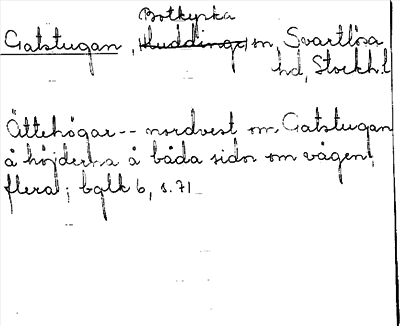 Botkyrka
Gatstugan, Huddinge sn, Svartlösa
hd, Stockh.l
Ättehögar -- nordvest om Gatstugan
å höjderna å båda sidor om vägen,
flera; bglk 6, s. 71